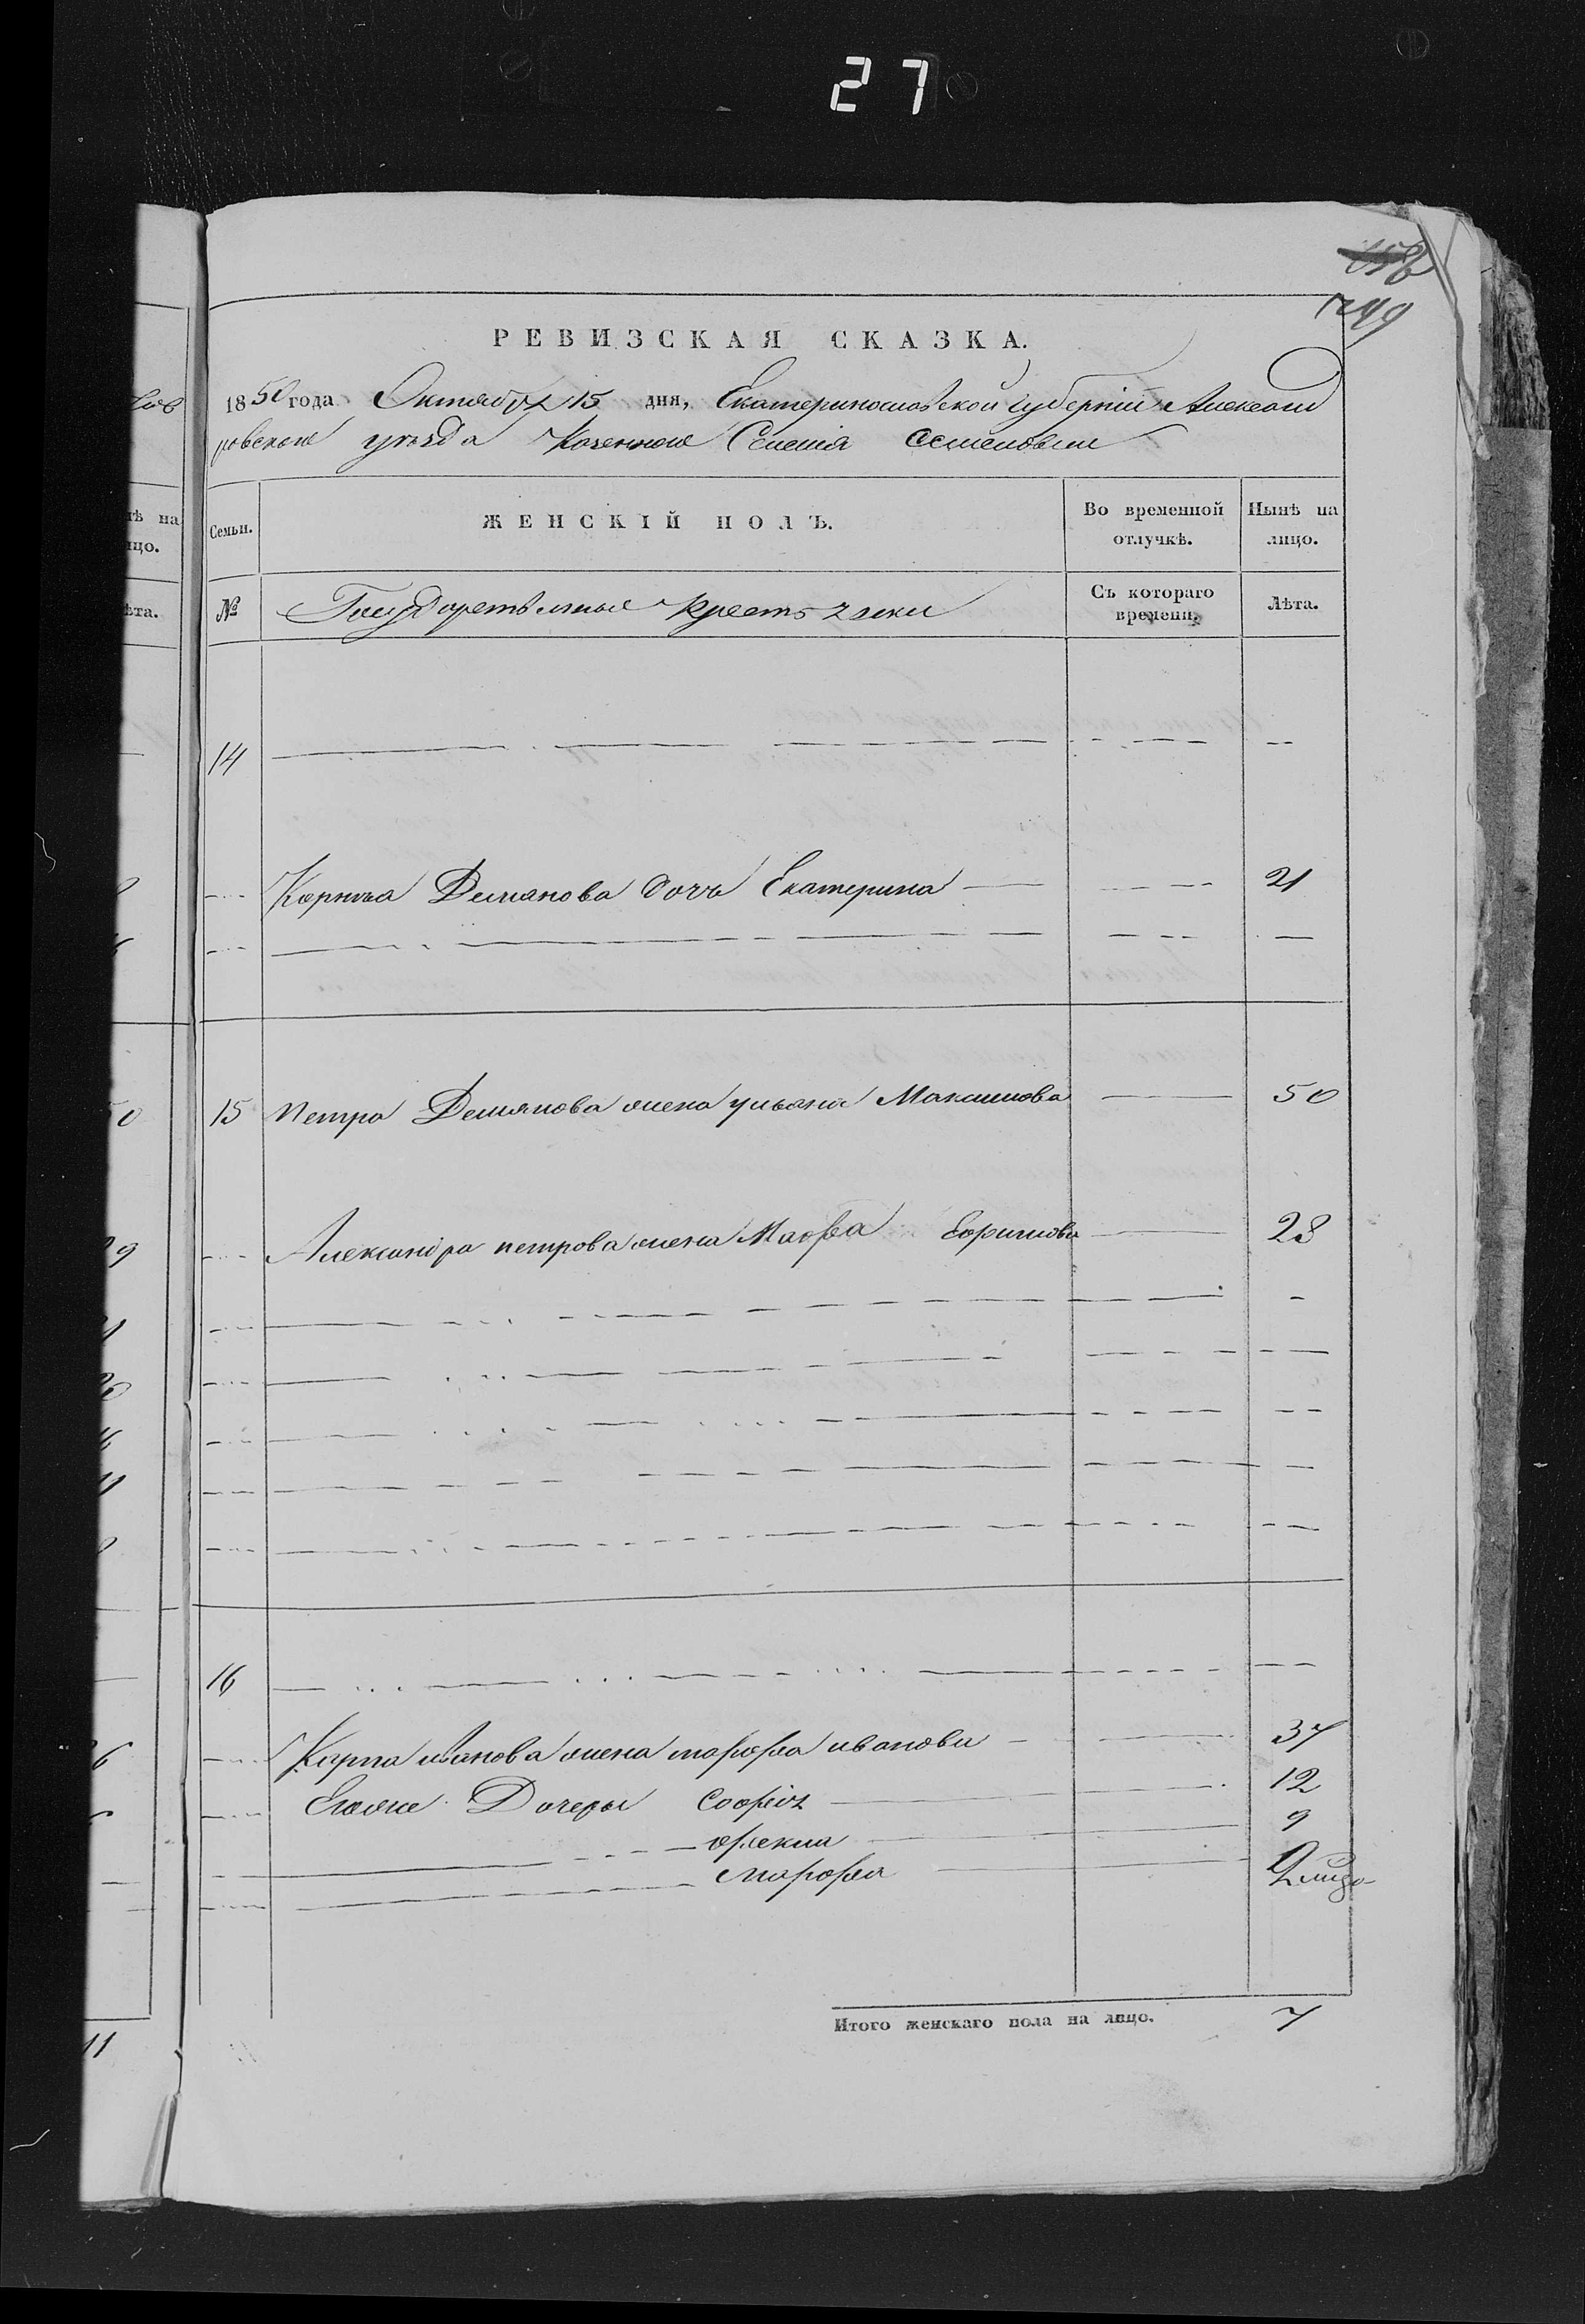 27
749
РЕВИЗСКАЯ СКАЗКА.
1850 года Октября 15 дня, Екатеринославской губерніи Александ
ровскаго уезда Казеннаго Селенія Семеновки
Семьи. ЖЕНСКІЙ ПОЛЪ. Во временной отлучкѣ. Нынѣ на лицо.
№ Государственные крестьянки Съ котораго времени. Лѣта.
14
Корнѣя Демянова дочь Екатерина 21
15 Петра Демянова жена ульяна Максимова 50
Александра петрова жена Марфа Ефимова 28
16
Карпа иванова жена марфа иванова 37
Егоже Дочеры Софія 12
фекла 9
марфа
Итого женскаго пола на лицо. 7
11